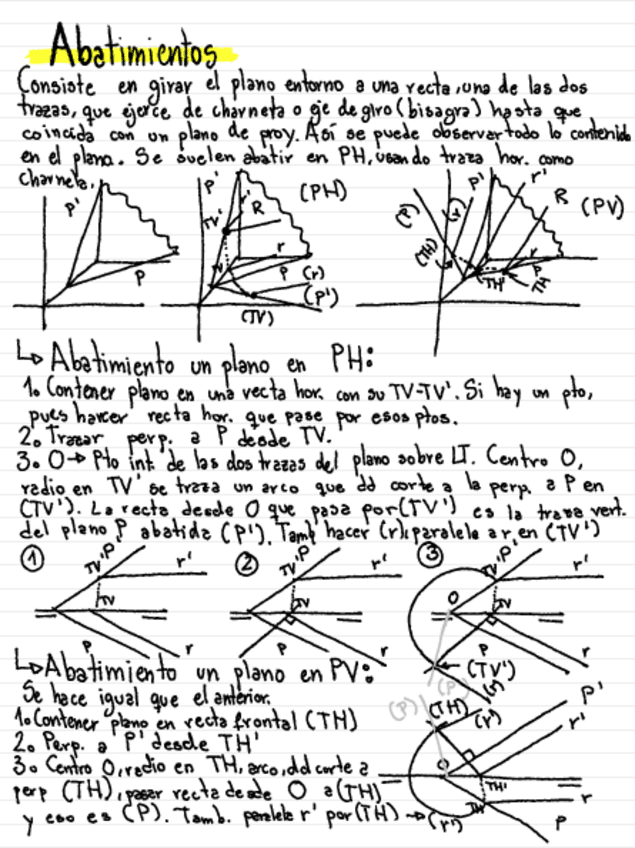 Abatimientos
Consiste en girar el plano entorno a una recta, una de las dos
trazas, que ejerce de charneta o eje de giro (bisagra) hasta que
coincida con un plano de proy. Así se puede observar todo lo contenido
en el plano. Se suelen abatir en PH, usando traza hor. como
charnela.
P' P
P' (PH) TV' r' R V r P (r) (P') (TV)
(P) (r) P' r' R (PV) (TH) r P (TH' TH
↳ Abatimiento un plano en PH:
1. Contener plano en una recta hor. con su TV-TV'. Si hay un pto,
pues harcer recta hor. que pase por esos ptos.
2. Trazar perp. a P desde TV.
3. O→ Pto int. de las dos trazas del plano sobre LT. Centro O,
radio en TV' se traza un arco que dd corte a la perp. a P en
(TV'). La recta desde O que pasa por (TV') es la traza vert.
del plano P abatida (P'). Tamb hacer (r) paralela a r en (TV')
① TV' P' r' TV P r
② TV' P' r' TV P r
③ TV' P' r' O TV P r (TV') (P') (r)
↳ Abatimiento un plano en PV:
Se hace igual que el anterior.
1. Contener plano en recta frontal (TH)
2. Perp. a P' desde TH'
3. Centro O, radio en TH, arco, dd corte a
perp (TH), pasar recta desde O a (TH)
y eso es (P). Tamb. paralela r' por (TH) → (r')
(P) (TH) (r') P' r' O TH' TH r P